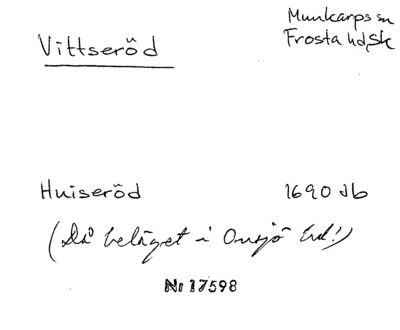 Vittseröd
Munkarps sn
Frosta hd, Sk
Huiseröd 1690 db
(Då beläget i Onsjö hd!)
Nr 17598